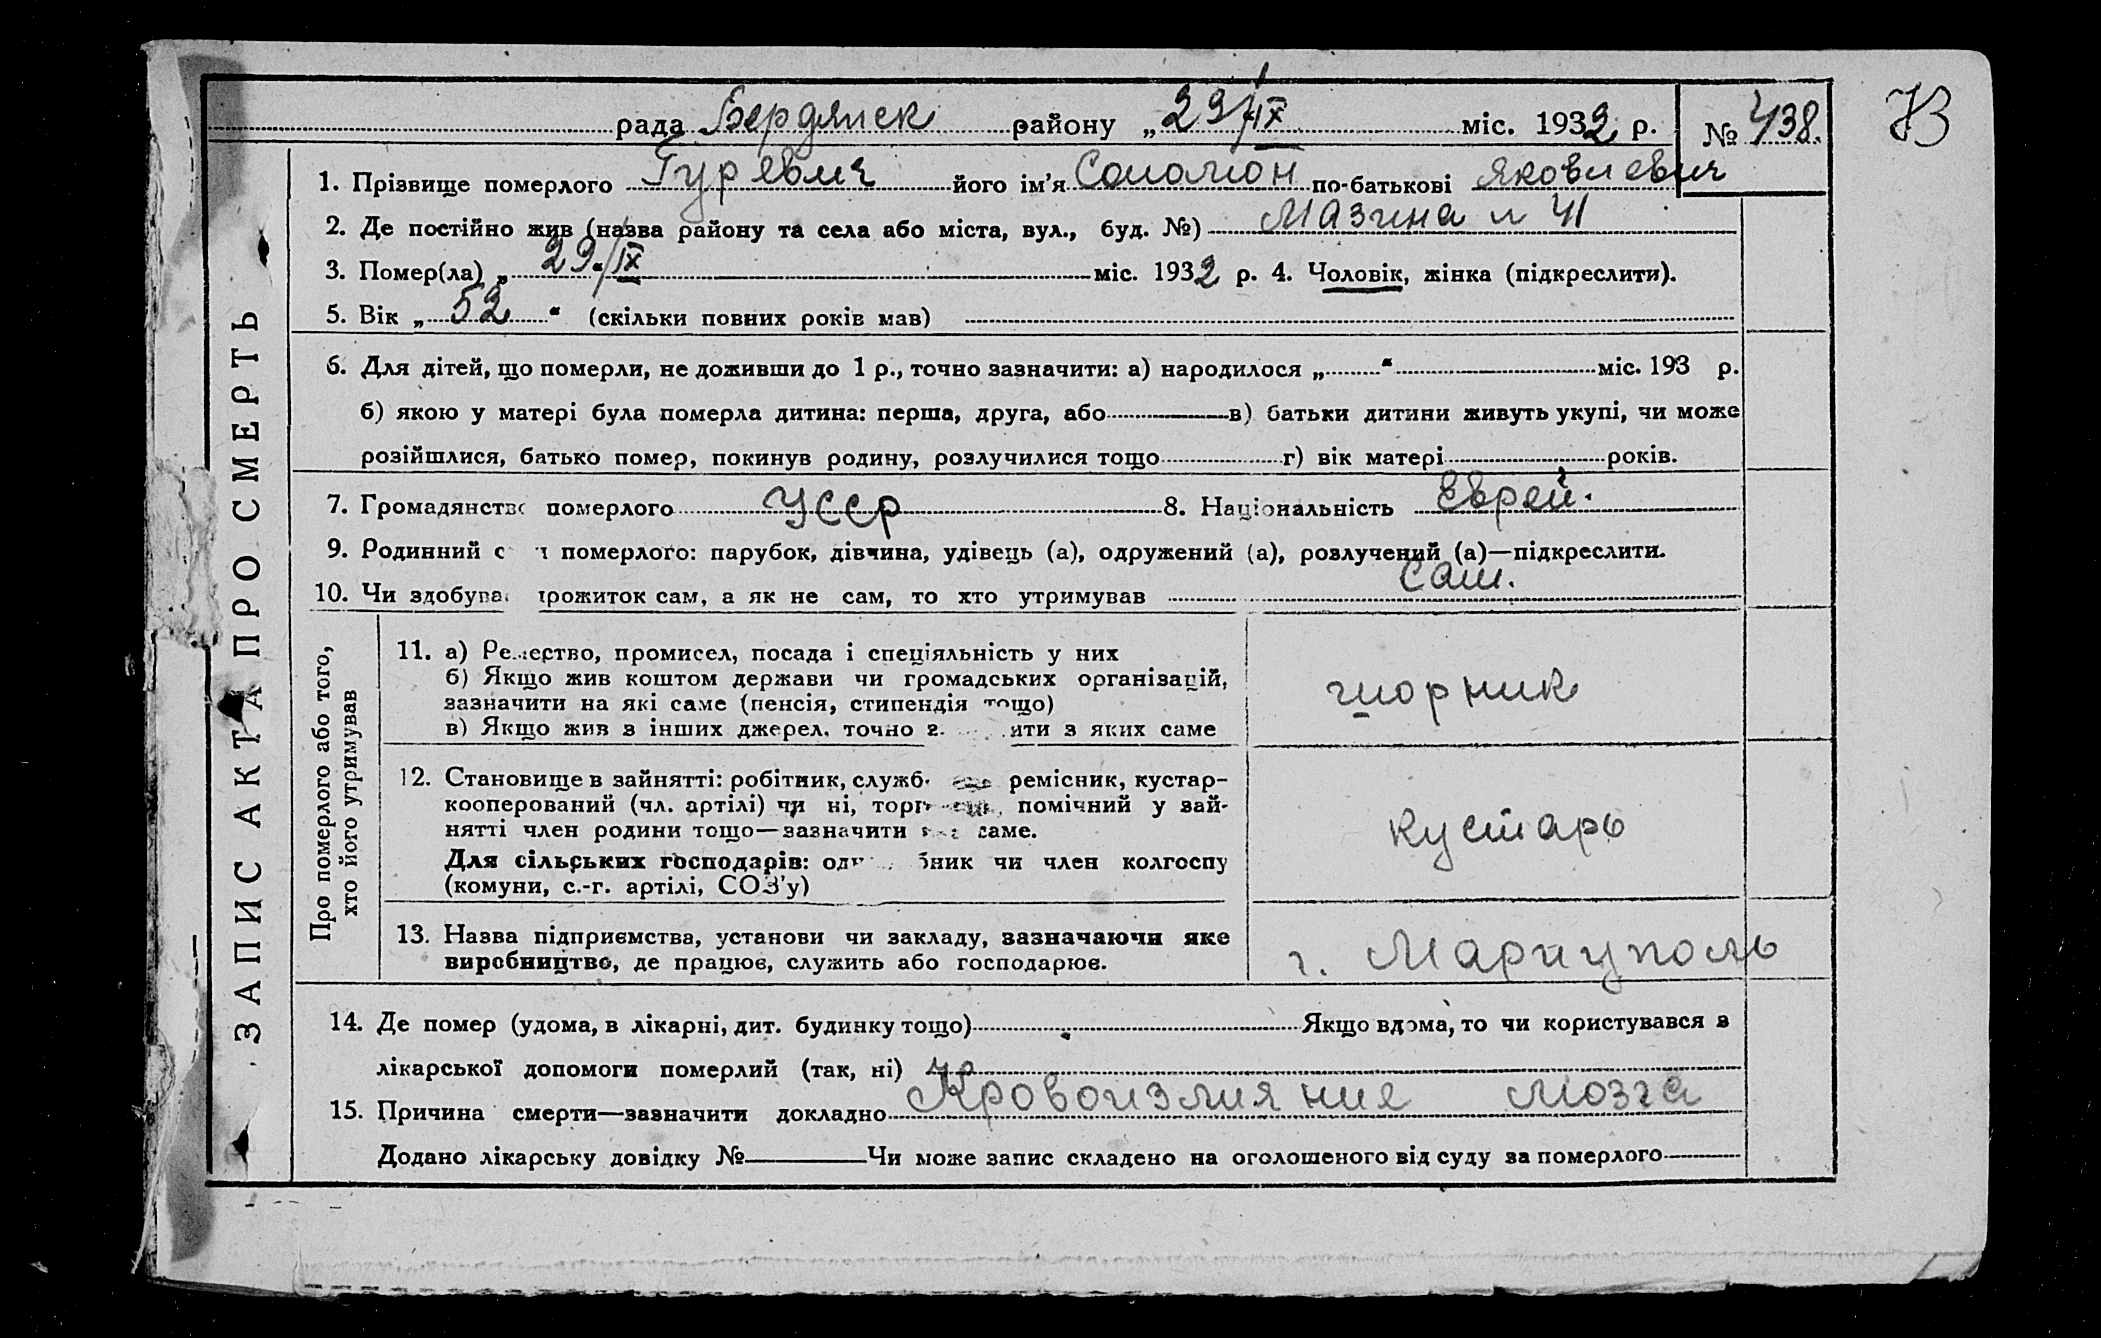 рада Бердянск району „29/IX міс. 1932 р. № 438. 73
1. Прізвище померлого Гуревич його ім'я Соломон по-батькові Яковлевич
2. Де постійно жив (назва району та села або міста, вул., буд. №) Мазина 41
3. Помер(ла) „29/IX міс. 1932 р. 4. Чоловік, жінка (підкреслити).
5. Вік „52" (скільки повних років мав)
6. Для дітей, що померли, не доживши до 1 р., точно зазначити: а) народилося „ " міс. 193 р.
б) якою у матері була померла дитина: перша, друга, або в) батьки дитини живуть укупі, чи може
розійшлися, батько помер, покинув родину, розлучилися тощо г) вік матері років.
7. Громадянство померлого УССР 8. Національність Еврей.
9. Родинний с померлого: парубок, дівчина, удівець (а), одружений (а), розлучений (а)—підкреслити.
10. Чи здобува прожиток сам, а як не сам, то хто утримував сам.
ЗАПИС АКТА ПРО СМЕРТЬ
Про померлого або того,
хто його утримував
11. а) Ремество, промисел, посада і спеціяльність у них
б) Якщо жив коштом держави чи громадських організацій,
зазначити на які саме (пенсія, стипендія тощо)
в) Якщо жив з інших джерел, точно з яких саме
шорник
12. Становище в зайнятті: робітник, служб ремісник, кустар-
кооперований (чл. артілі) чи ні, торг помічний у зай-
нятті член родини тощо—зазначити саме.
Для сільських господарів: од бник чи член колгоспу
(комуни, с.-г. артілі, СОЗ'у)
кустарь
13. Назва підприємства, установи чи закладу, зазначаючи яке
виробництво, де працює, служить або господарює.
г. Мариуполь
14. Де помер (удома, в лікарні, дит. будинку тощо) Якщо вдома, то чи користувався з
лікарської допомоги померлий (так, ні)
15. Причина смерти—зазначити докладно Кровоизлияние мозга
Додано лікарську довідку № Чи може запис складено на оголошеного від суду за померлого